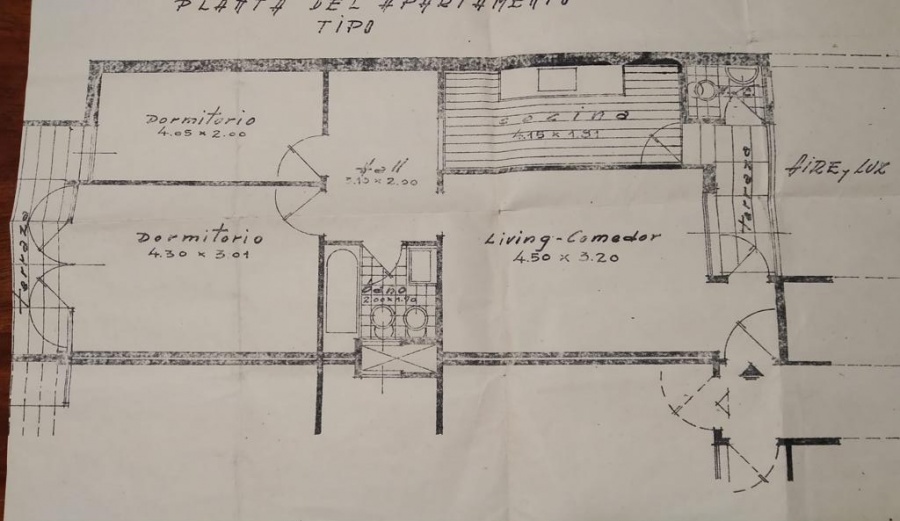 PLANTA DEL APARTAMENTO
TIPO
Dormitorio
4.05 x 2.00
Hall
2.00
Cocina
4.15 x 1.91
Terraza
AIRE y LUZ
Dormitorio
4.30 x 3.01
Living-Comedor
4.50 x 3.20
Terraza
baño